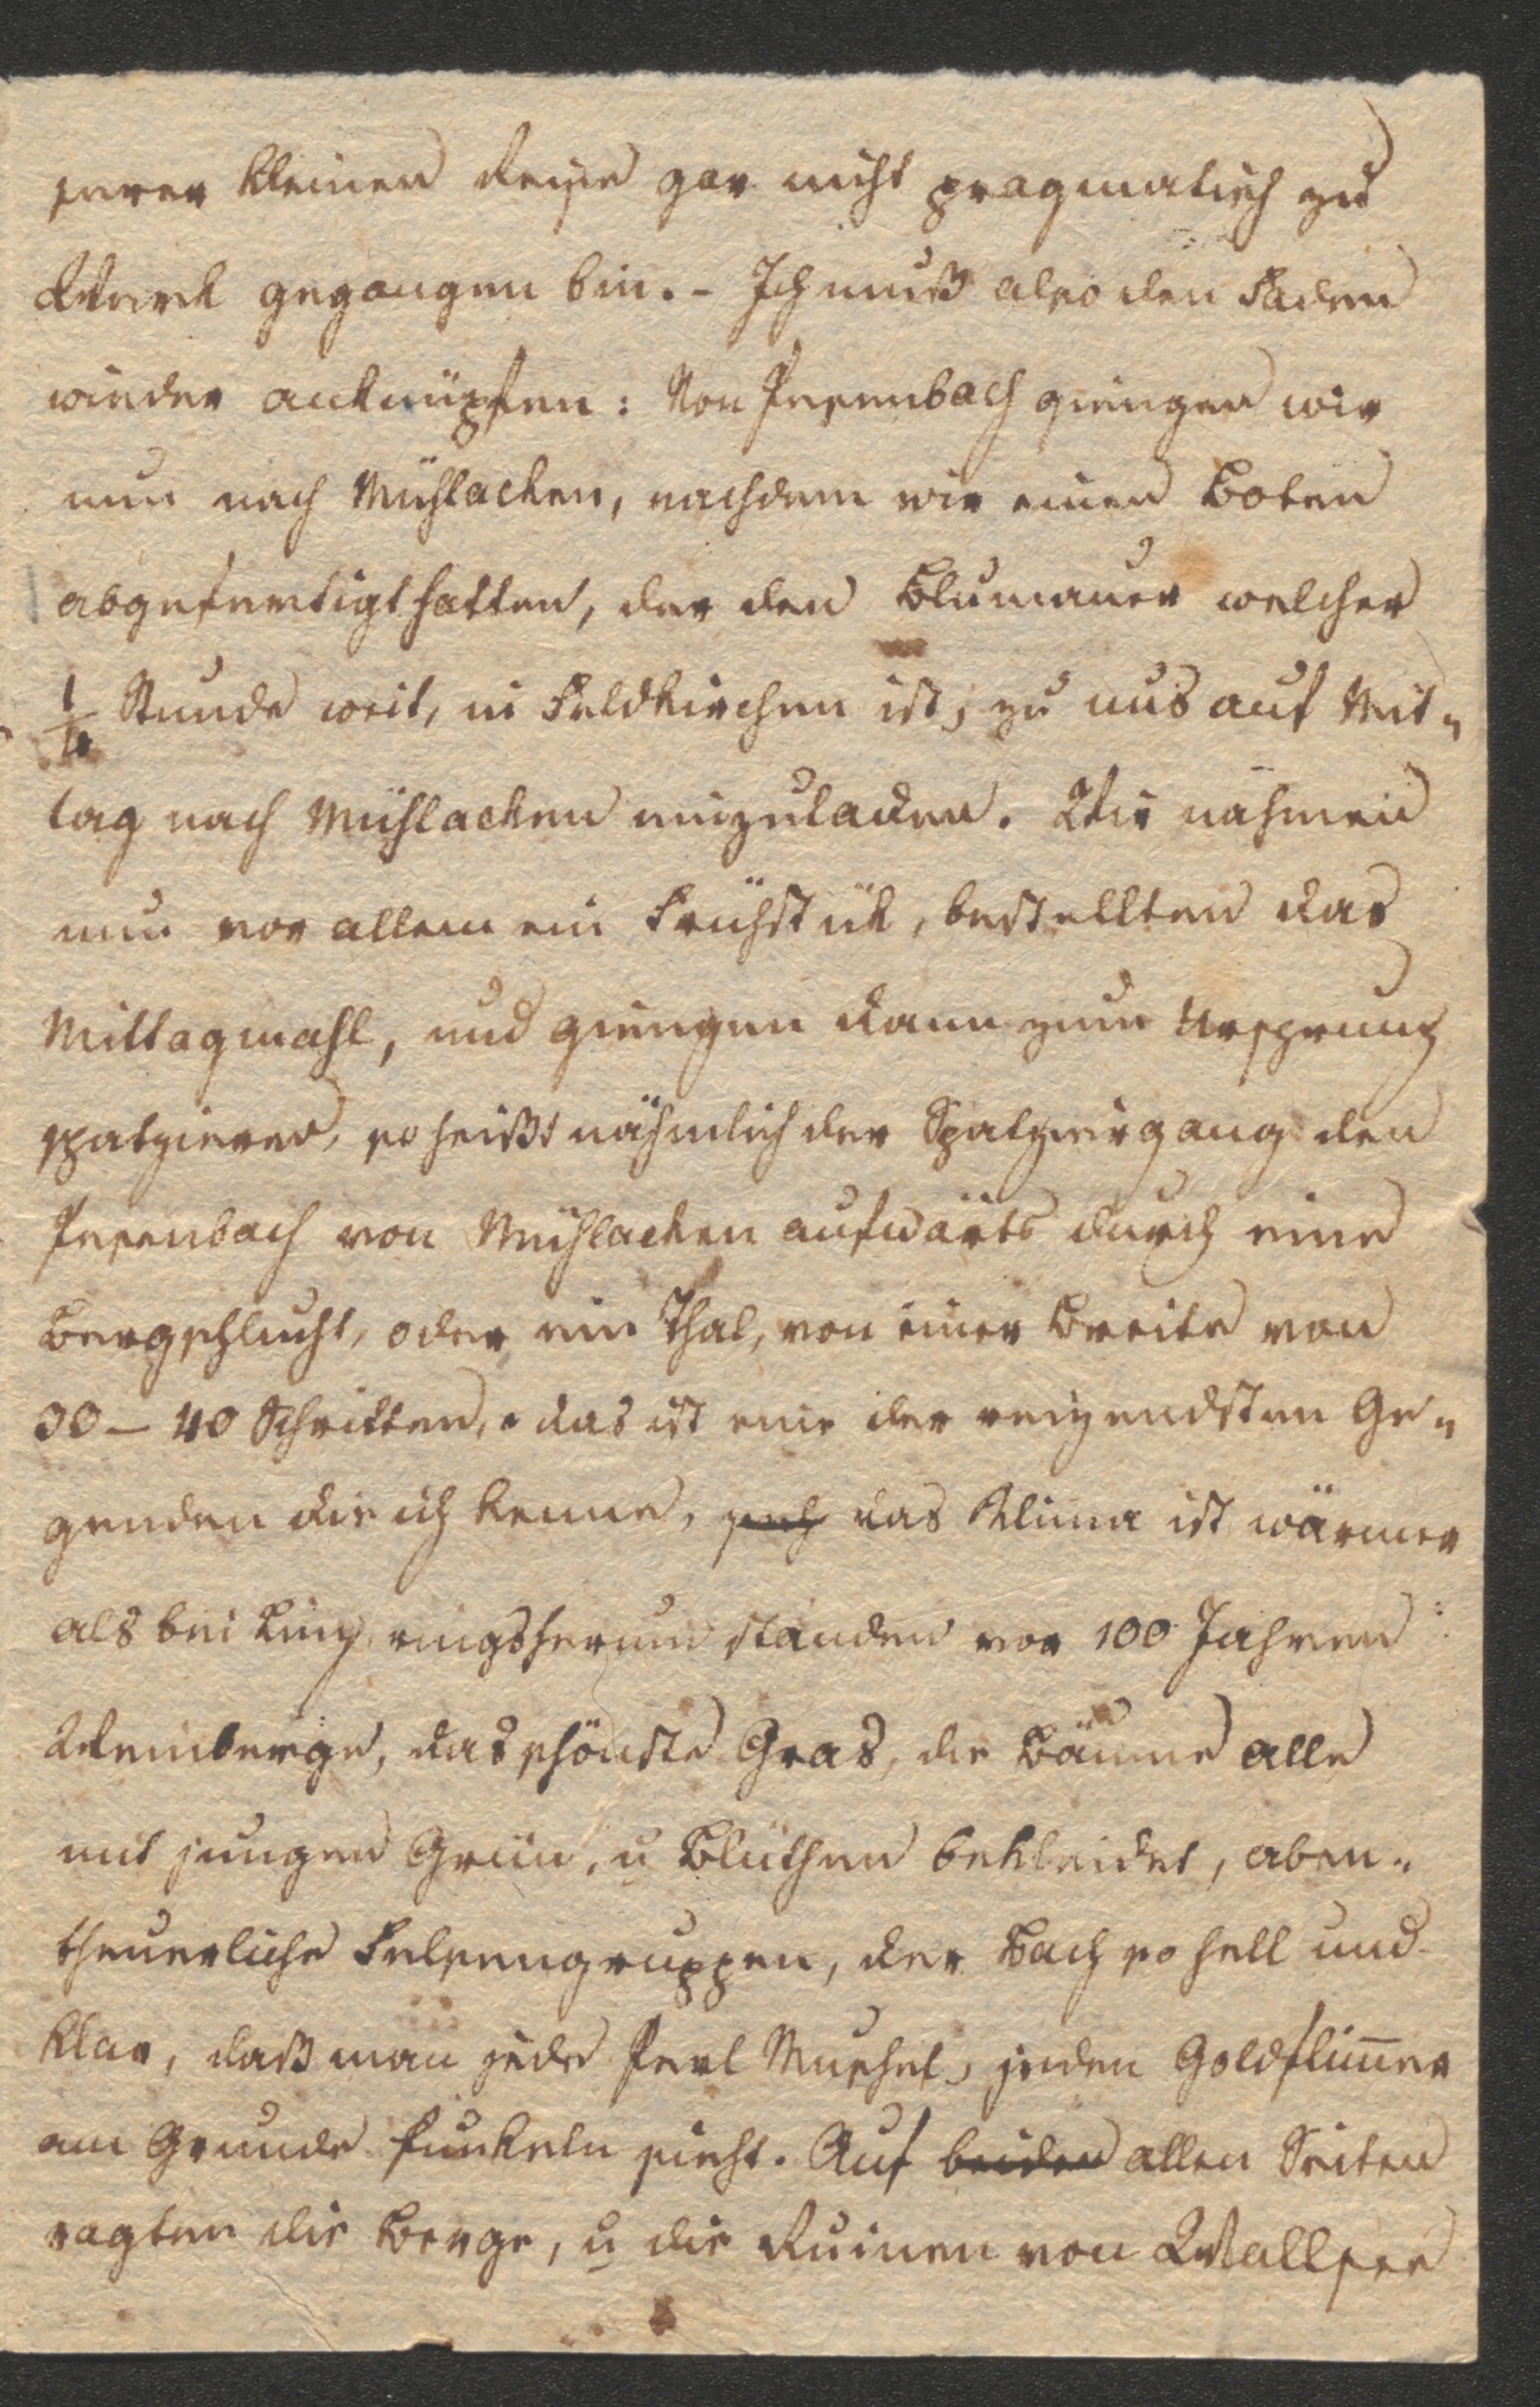 serer kleinen Reise gar nicht pragmatisch zu
Werck gegangen bin. - Ich muß also den Faden
wieder anknüpfen: Von Pesenbach giengen wir
nun nach Mühlacken, nachdem wir einen Boten
abgefertigt hatten, der den Blumauer welcher
1/4 Stunde weit, in Feldkirchen ist, zu uns auf Mit-
tag nach Mühlacken einzuladen. Wir nahmen
nun vor allem ein Frühstük, bestellten das
Mittagmahl, und giengen dann zum Ursprung
spatzieren, so heißt nähmlich der Spatziergang den
Pesenbach von Mühlacken aufwärts durch eine
Bergschlucht, oder ein Thal, von einer Breite von
30 – 40 Schritten, das ist eine der reizendsten Ge-
genden die ich kenne, das Klima ist wärmer
als bei Linz, ringsherum standen vor 100 Jahren
Weinberge, das schönste Gras, die Bäume alle
mit jungen Grün, u Blüthen bekleidet, aben-
theuerliche Felsengruppen, der Bach so hell und
klar, daß man jede Perl Muschel, jeden Goldflim̅er
am Grunde funkeln sieht. Auf beiden allen Seiten
ragten die Berge, u die Ruinen von Wallsee